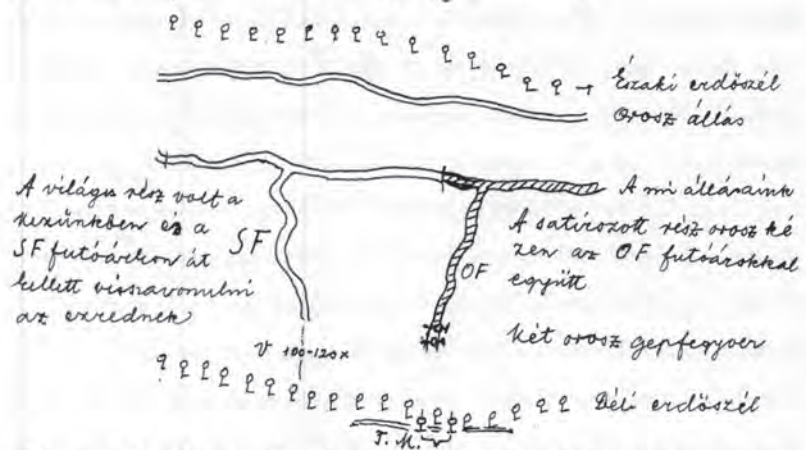 Északi erdőszél
Orosz állás
A mi állásaink
A világos rész volt a
kezünkben és a
SF futóárkon át
kellett visszavonulni
az ezrednek
SF
A satírozott rész orosz ké
zen az OF futóárokkal
együtt
OF
két orosz gépfegyver
v 100-120x
Déli erdőszél
T. M.